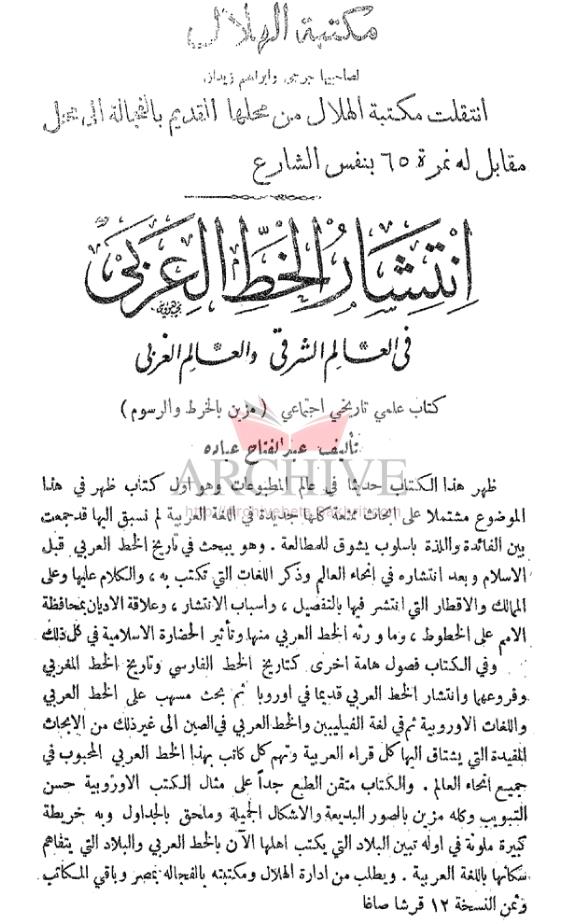 مكتبة الهلال
لصاحبيها جرجي وابراهيم زيدان
انتقلت مكتبة الهلال من محلها القديم بالفجالة الى محل
مقابل له نمرة ٦٥ بنفس الشارع
إنتِشَارُ الخَطِّ العَرَبي
في العالم الشرقي والعالم الغربي
كتاب علمي تاريخي اجتماعي (مزين بالخرط والرسوم)
تأليف عبد الفتاح عباده
ARCHIVE
ظهر هذا الكتاب حديثا في عالم المطبوعات وهو اول كتاب ظهر في هذا
الموضوع مشتملا على ابحاث ممتعة كلها جديدة في اللغة العربية لم نسبق اليها قد جمعت
بين الفائدة واللذة باسلوب يشوق للمطالعة . وهو يبحث في تاريخ الخط العربي قبل
الاسلام وبعد انتشاره في انحاء العالم وذكر اللغات التي تكتب به ، والكلام عليها وعلى
الممالك والاقطار التي انتشر فيها بالتفصيل ، واسباب الانتشار ، وعلاقة الاديان بمحافظة
الامم على الخطوط ، وما ورثه الخط العربي منها وتأثير الحضارة الاسلامية في كل ذلك
وفي الكتاب فصول هامة اخرى كتاريخ الخط الفارسي وتاريخ الخط المغربي
وفروعهما وانتشار الخط العربي قديما في اوروبا ثم بحث مسهب على الخط العربي
واللغات الاوروبية ثم في لغة الفيليبين والخط العربي في الصين الى غير ذلك من الابحاث
المفيدة التي يشتاق اليها كل قراء العربية وتهم كل كاتب بهذا الخط العربي المحبوب في
جميع انحاء العالم . والكتاب متقن الطبع جداً على مثال الكتب الاوروبية حسن
التبويب وكله مزين بالصور البديعة والاشكال الجميلة وملحق بالجداول وبه خريطة
كبيرة ملونة في اوله تبين البلاد التي يكتب اهلها الآن بالخط العربي والبلاد التي يتفاهم
سكانها باللغة العربية . ويطلب من ادارة الهلال ومكتبته بالفجاله بمصر وباقي المكاتب
وثمن النسخة ١٢ قرشا صاغا